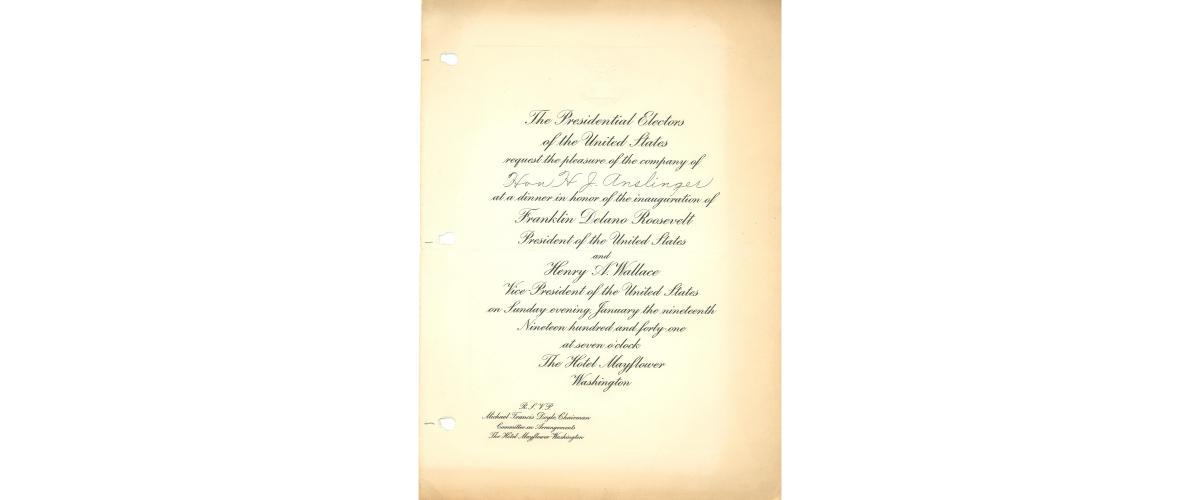 The Presidential Electors
of the United States
request the pleasure of the company of
Hon H. J. Anslinger
at a dinner in honor of the inauguration of
Franklin Delano Roosevelt
President of the United States
and
Henry A. Wallace
Vice-President of the United States
on Sunday evening, January the nineteenth
Nineteen hundred and forty-one
at seven o'clock
The Hotel Mayflower
Washington
R.S.V.P.
Michael Francis Doyle, Chairman
Committee on Arrangements
The Hotel Mayflower Washington